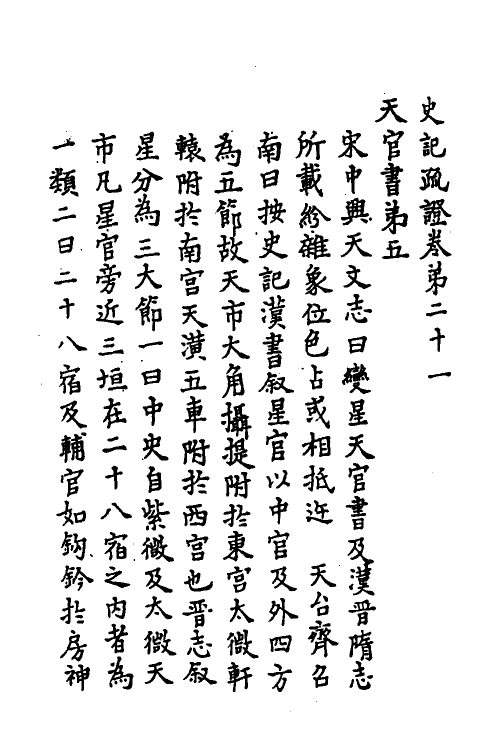 史記疏證卷第二十一
天官書第五
宋中興天文志曰變星天官書及漢晉隋志
所載紛雜象位色占或相抵迕　天台齊召
南曰按史記漢書叙星官以中官及外四方
為五節故天市大角攝提附於東宮太微軒
轅附於南宮天潢五車附於西宮也晉志叙
星分為三大節一曰中央自紫微及太微天
市凡星官旁近三垣在二十八宿之内者為
一類二曰二十八宿及輔官如鈎鈐於房神